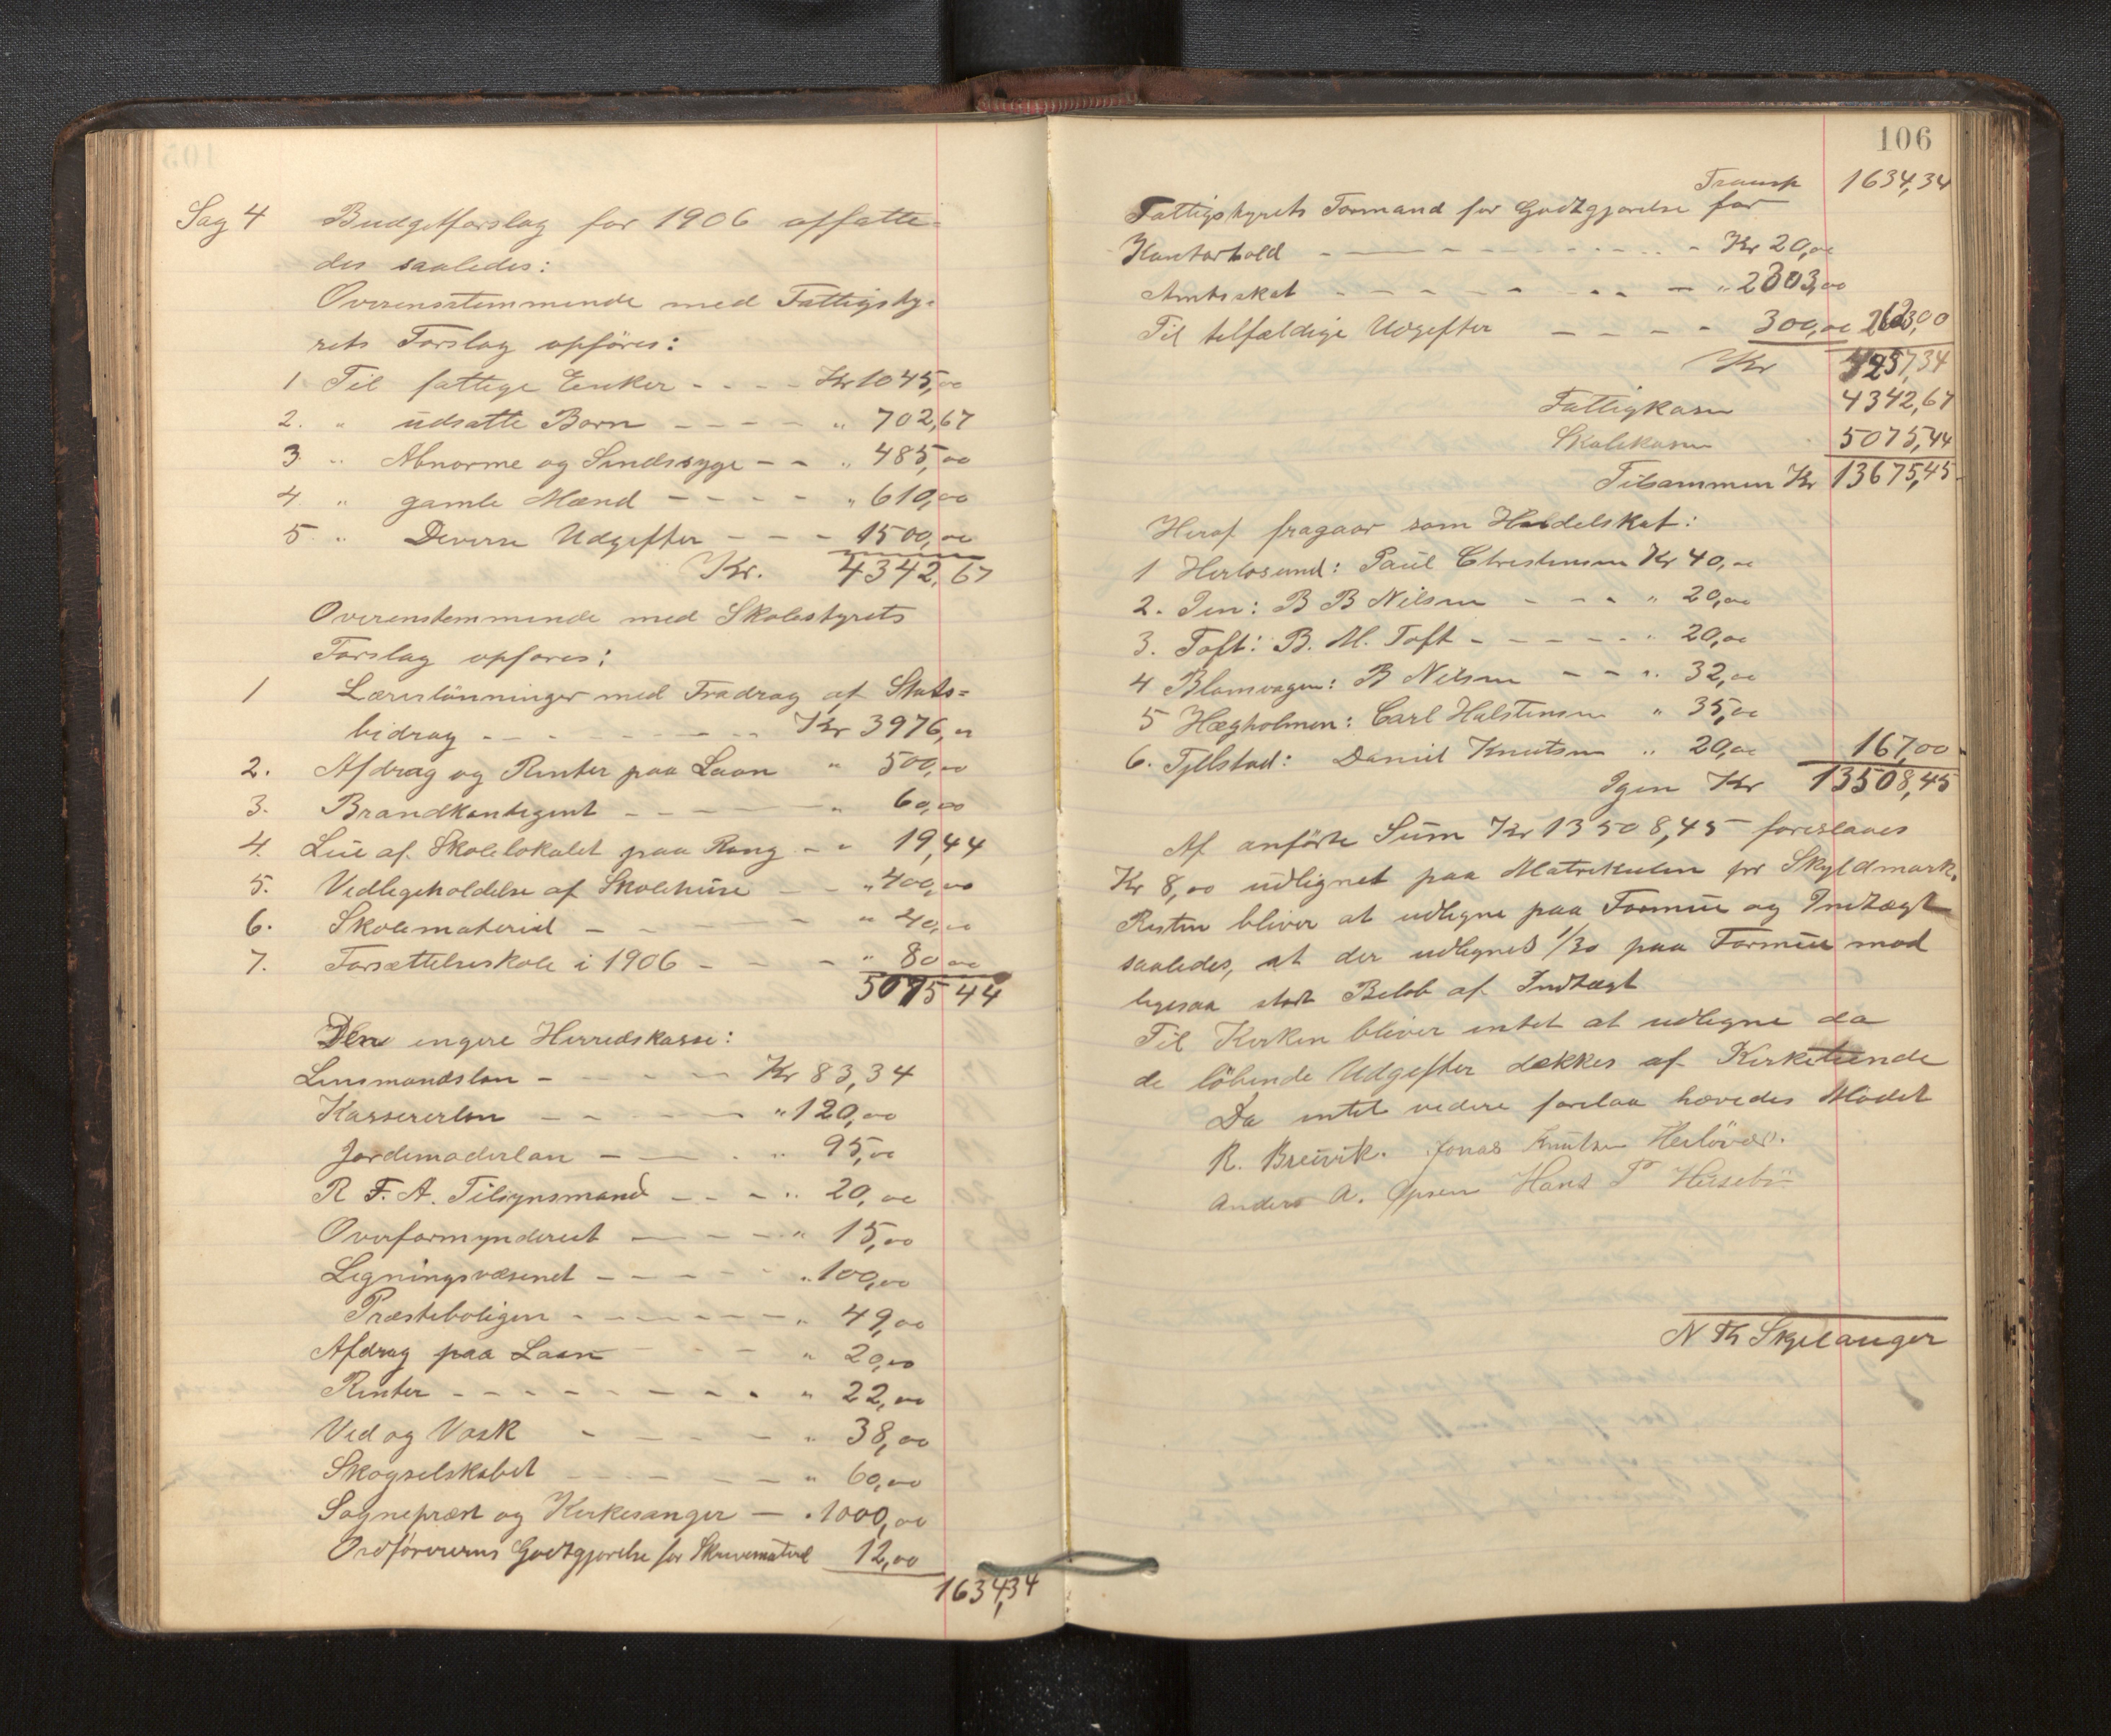 Sag 4 Budgetforslag for 1906 affatte-
des saaledes:
Overensstemmende med Fattigsty-
rets Forslag opföres:
1 Til fattige Enker - - - - Kr 1045,00
2. " udsatte Børn - - - - " 702,67
3 " Abnorme og Sindssyge - - " 485,00
4. " gamle Mænd - - - - " 610,00
5. " Diverse Udgifter - - - 1500,00
Kr. 4342,67
Overenstemmende med Skolestyrets
Forslag opføres:
1 Lærerlönninger med Fradrag af Stats=
bidrag - - - - - - - Kr 3976,00
2. Afdrag og Renter paa Laan " 500,00
3. Brandkontigent - - - - - " 60,00
4. Leie af Skolelokalet paa Rong - - 19,44
5. Vedligeholdelse af Skolehuse - - " 400,00
6. Skolemateriel - - - - - " 40,00
7. Forsættelseskole i 1906 - - - " 80 00
5075 44
Den engere Herredskasse:
Lensmandsløn - - - - - Kr 83,34
Kassererløn - - - - - " 120,00
Jordemoderløn - - - " 95,00
R F. A. Tilsynsmand - - - " 20,00
Overformynderiet - - - - " 15,00
Ligningsvæsenet - - - - - " 100,00
Præsteboligen - - - - - - " 49,00
Afdrag paa Laan - - - " 20,00
Renter - - - - - - - - " 22,00
Ved og Vask - - - - - " 38,00
Skogselskabet - - - - - " 60,00
Sogneprest og Kirkesanger - " 1000,00
Ordførerens Godtgjørelse for Skrivematriel 12,00
1634,34
106
Transp 1634,34
Fattigstyrets Formand for Godtgjørelse for
Kontorhold - - - - - - - - Kr 20,00
Amtsskat - - - - - - - - " 2303,00
Til tilfældige Udgifter - - - - 300,00 2623,00
Kr 4257,34
Fattigkasse 4342,67
Skolekassen 5075,44
Tilsammen Kr 13675,45
Heraf fragaar som Handelskat:
1 Herlosund: Paul Christensen Kr 40,00
2. Oen: B B Nilsen - - - " 20,00
3. Toft: B. M. Toft - - - - - " 20,00
4 Blomvågen: B Nilsen - - " 32,00
5 Hægholmen: Carl Halstensen " 35,00
6. Tjeldstad: Daniel Knutsen " 20,00 167,00
Igen Kr 13508,45
Af anförte Sum Kr 13508,45 foreslaaes
Kr 8,00 udlignet paa Matrikulen pr Skyldmark.
Resten bliver at udligne paa Formue og Indtægt
saaledes, at der udlignes 1/30 paa Formue mod
ligesaa stort Beløb af Indtægt
Til Kirken bliver intet at udligne da
de löbende Udgifter dækkes af Kirketiende
Da intet videre forelaa hævedes Mödet
R. Breivik. Jonas Knutsen Herløver.
Anders A. Opsen Hans P Husebö
N Th Skjelanger